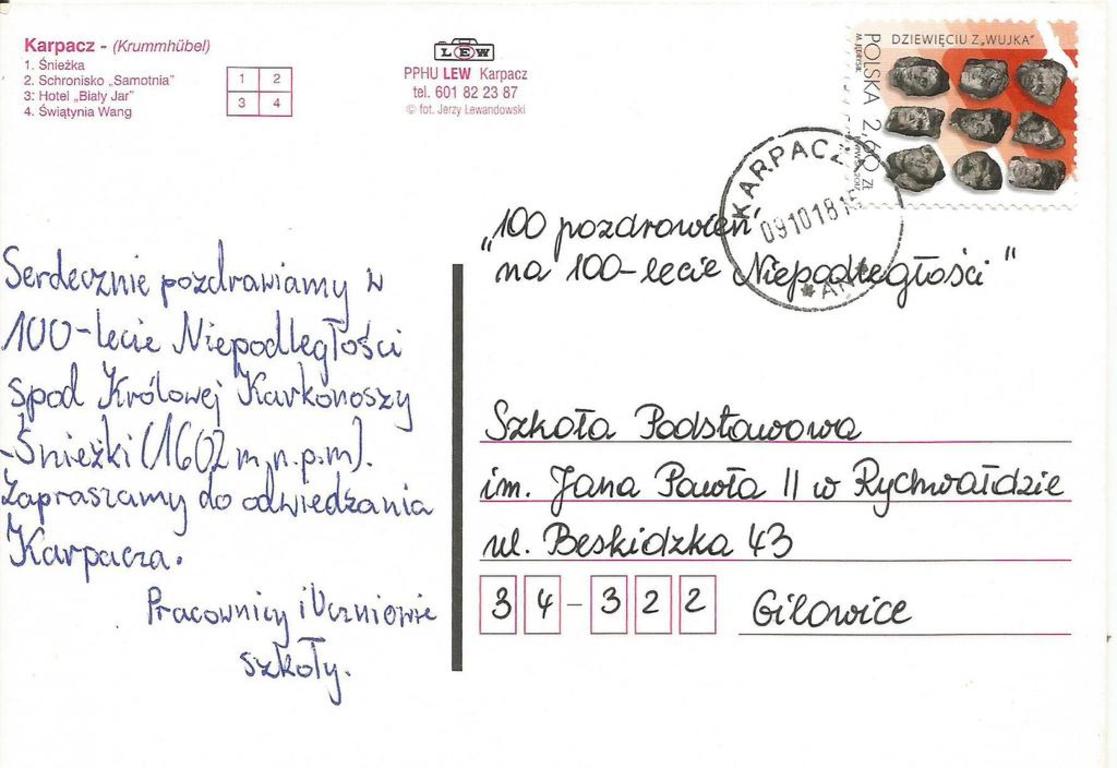 Karpacz - (Krummhübel)
1. Śnieżka
2. Schronisko „Samotnia"
3: Hotel „Biały Jar"
4. Świątynia Wang
1 2
3 4
LEW
PPHU LEW Karpacz
tel. 601 82 23 87
© fot. Jerzy Lewandowski
DZIEWIĘCIU Z „WUJKA"
POLSKA 2,60 ZŁ
KARPACZ
091018
„100 pozdrowień
na 100-lecie Niepodległości"
Serdecznie pozdrawiamy w
100-lecie Niepodległości
spod Królowej Karkonoszy
-Śnieżki (1602 m.n.p.m).
Zapraszamy do odwiedzania
Karpacza.
Pracownicy i Uczniowie
szkoły.
Szkoła Podstawowa
im. Jana Pawła II w Rychwałdzie
ul. Beskidzka 43
34-322 Gilowice